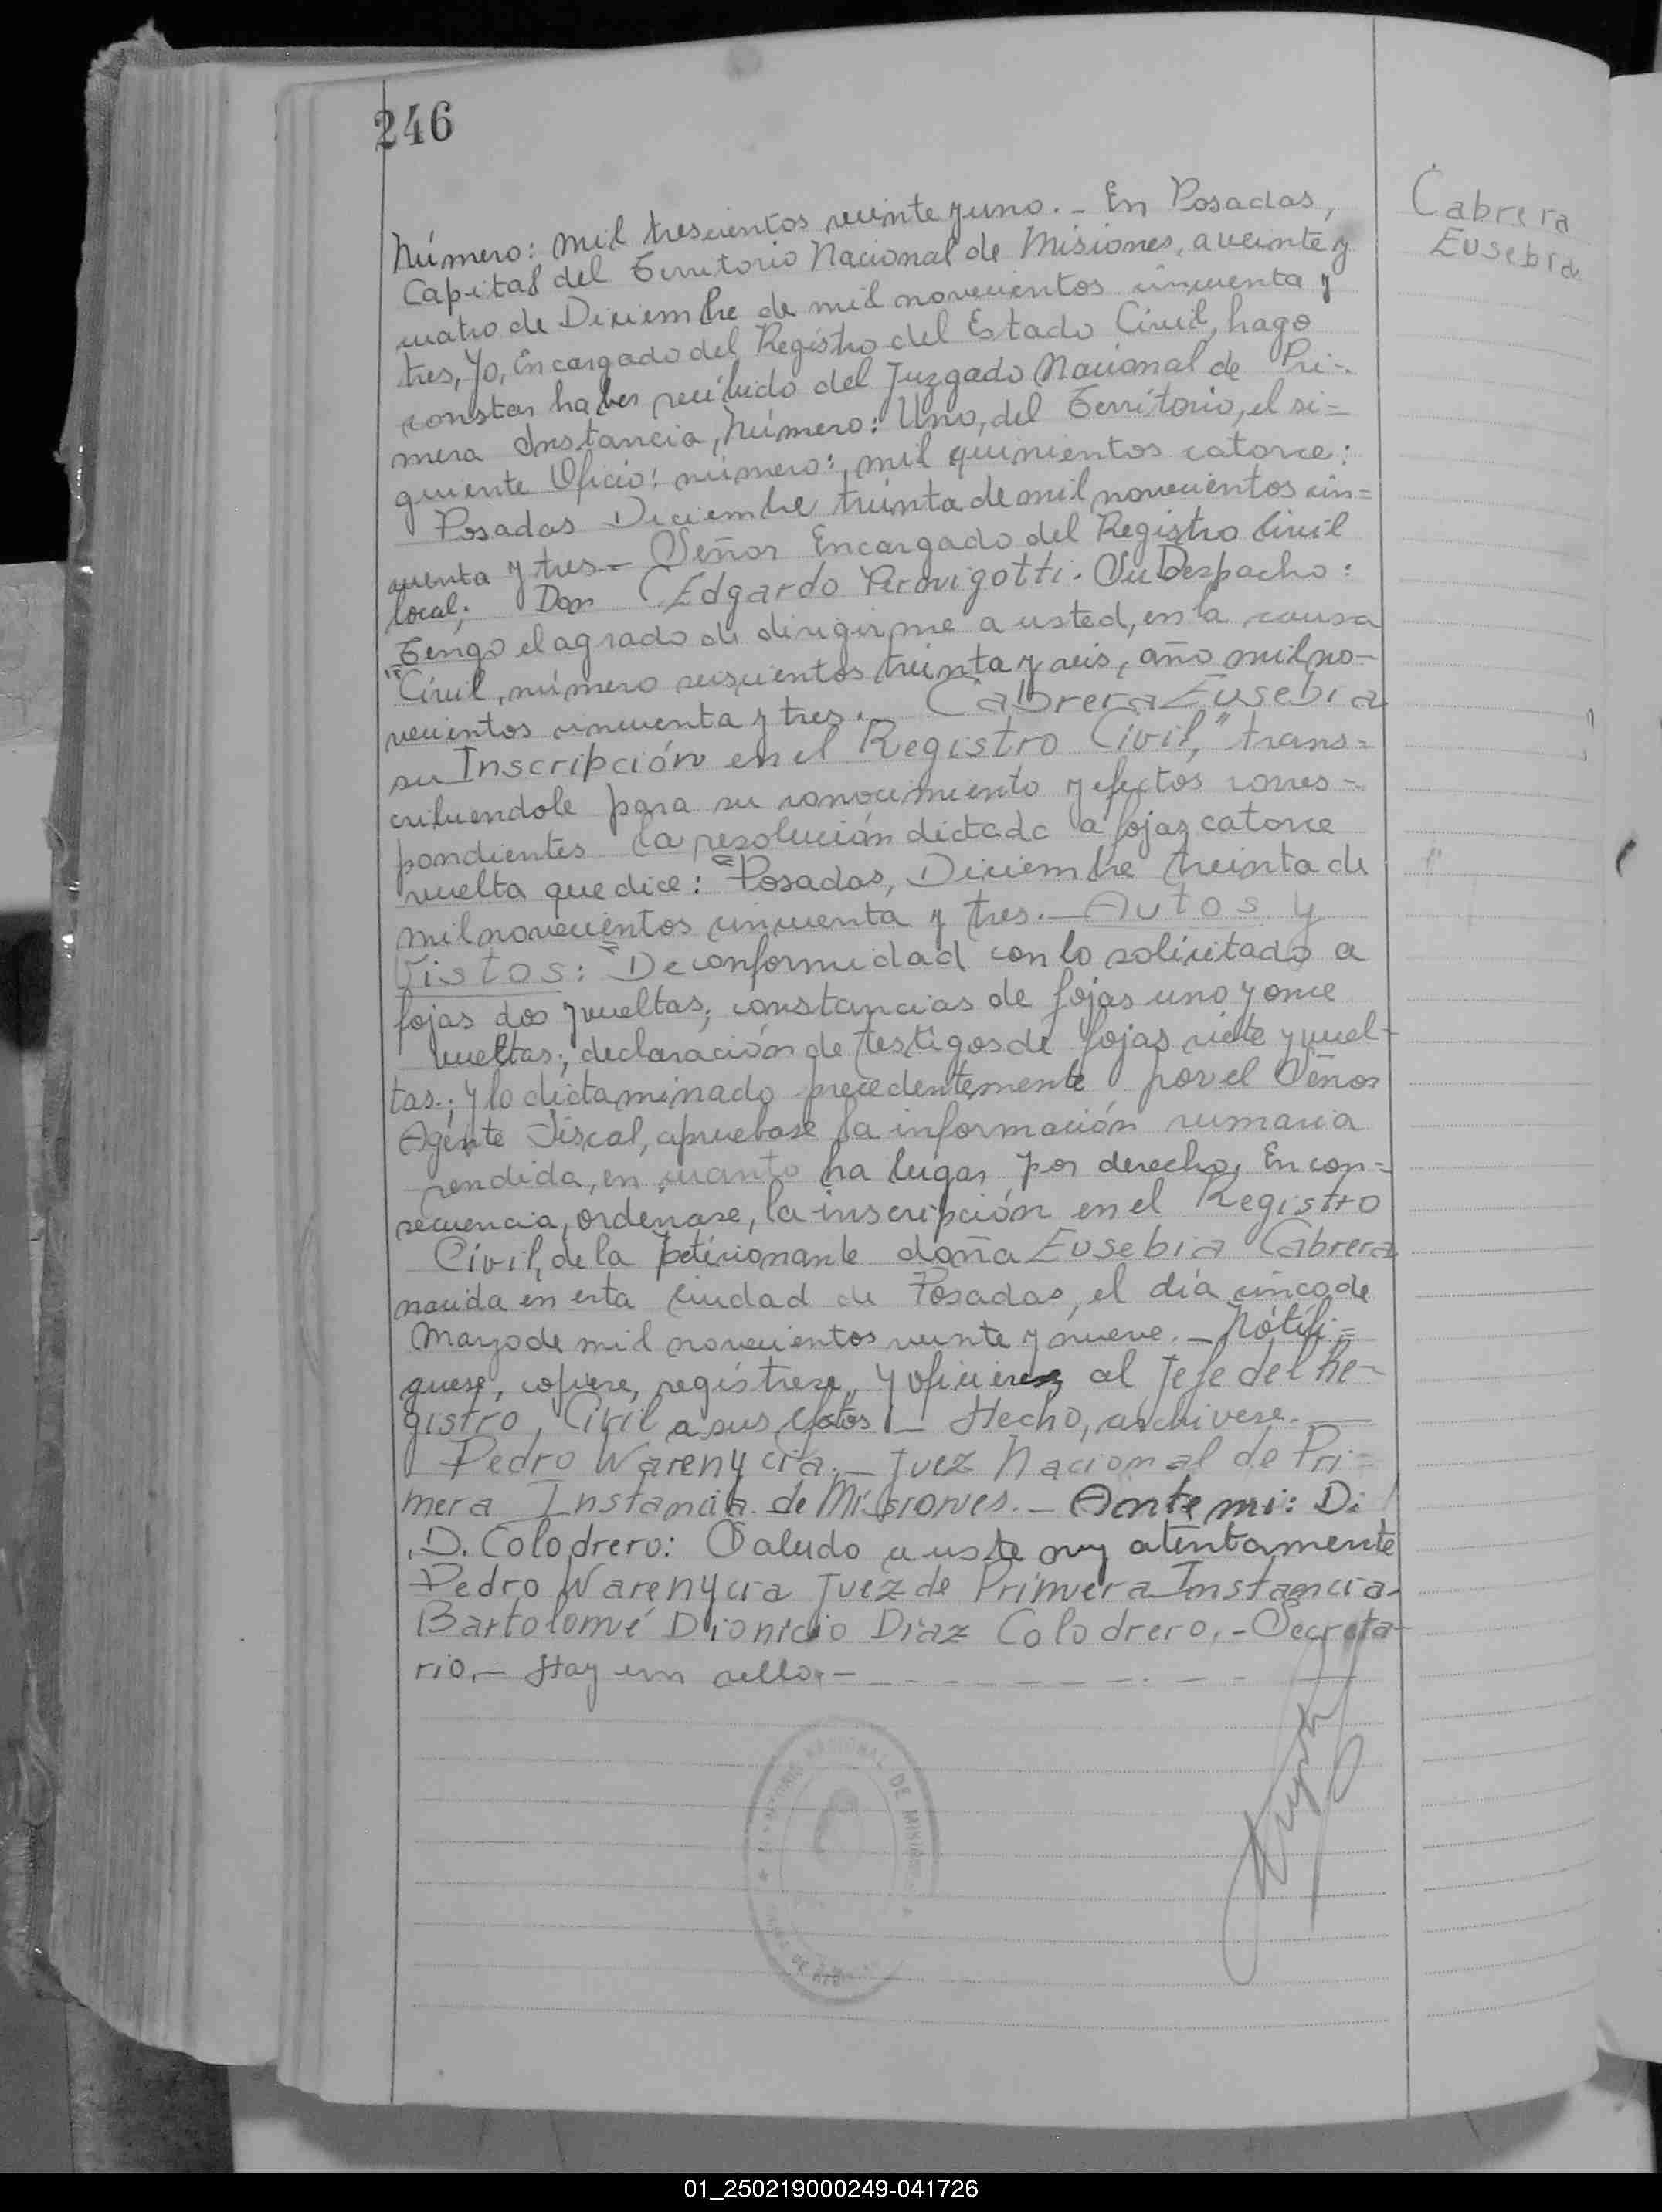 246
Cabrera
Eusebia
Número: mil trescientos veinte y uno. - En Posadas,
Capital del Territorio Nacional de Misiones, a veinte y
cuatro de Diciembre de mil novecientos cincuenta y
tres, Yo, Encargado del Registro del Estado Civil, hago
constar haber recibido del Juzgado Nacional de Pri-
mera Instancia, Número: Uno, del Territorio, el si=
guiente Oficio: número: mil quinientos catorce:
Posadas Diciembre treinta de mil novecientos cin=
cuenta y tres - Señor Encargado del Registro Civil
local; Don Edgardo Pernigotti. Su Despacho:
Tengo el agrado de dirigirme a usted, en la causa
"Civil, número seiscientos treinta y seis, año mil no-
vecientos cincuenta y tres. Cabrera Eusebia
su Inscripción en el Registro Civil," trans=
cribiendole para su conocimiento y efectos corres-
pondientes la resolución dictada a fojas catorce
vuelta que dice: "Posadas, Diciembre treinta de
mil novecientos cincuenta y tres. - Autos y
Vistos: = De conformidad con lo solicitado a
fojas dos y vueltas; constancias de fojas uno y once
vueltas; declaración de testigos de fojas siete y vuel-
tas; y lo dictaminado precedentemente por el Señor
Agente Fiscal, apruebase la información sumaria
rendida, en cuanto ha lugar por derecho, En con=
secuencia, ordenase, la inscripción en el Registro
Civil, de la peticionante doña Eusebia Cabrera
nacida en esta ciudad de Posadas, el día cinco de
Mayo de mil novecientos veinte y nueve. - Notifi=
quese, copiese, registrese, y oficiese al Jefe del Re-
gistro Civil a sus efatos - Hecho, archivese. —
Pedro Warenycia. - Juez Nacional de Pri=
mera Instancia de Misiones. - Ante mi: D.
D. Colodrero: Saludo a uste muy atentamente
Pedro Warenycia Juez de Primera Instancia.
Bartolomé Dionicio Diaz Colodrero. - Secreta-
rio. - Hay un sello. -
NACIONAL DE MISIONES
01_250219000249-041726